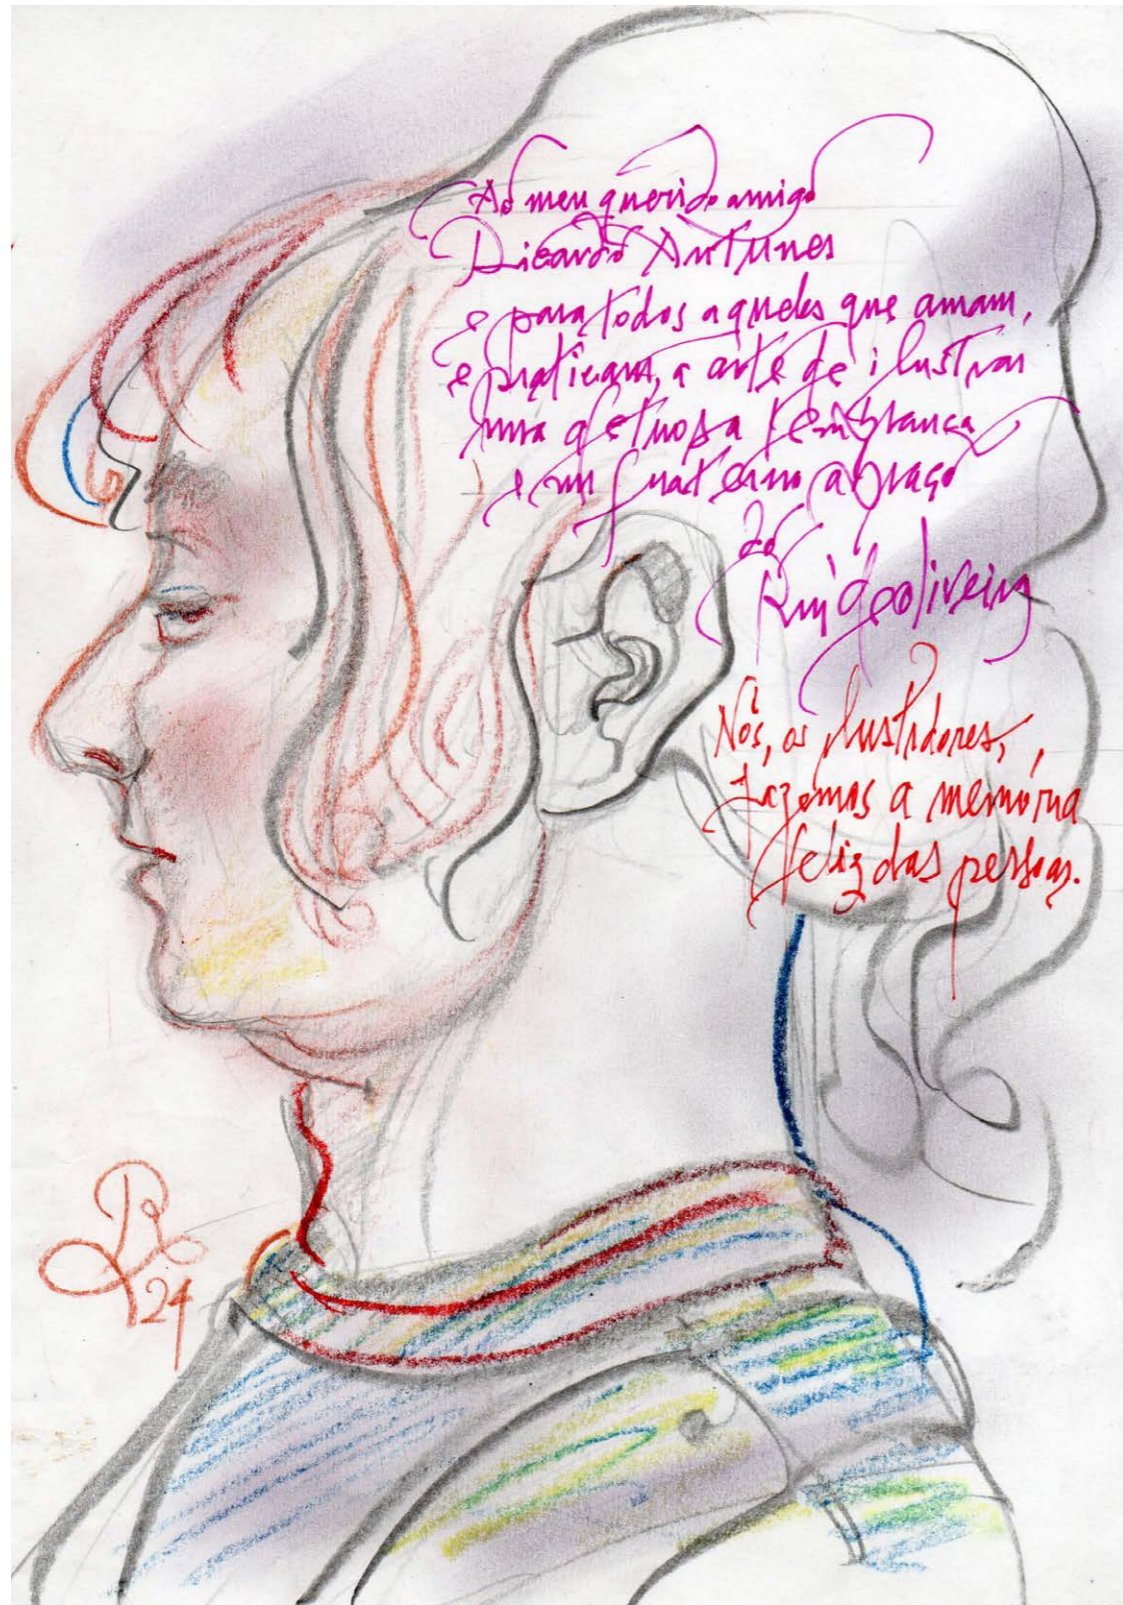 Ao meu querido amigo
Ricardo Antunes
e para todos aqueles que amam,
e praticam, a arte de ilustrar
uma afetuosa lembrança
e um fraterno abraço
do
Rui de oliveira
Nós, os ilustradores,
fazemos a memória
feliz das pessoas.
R
24